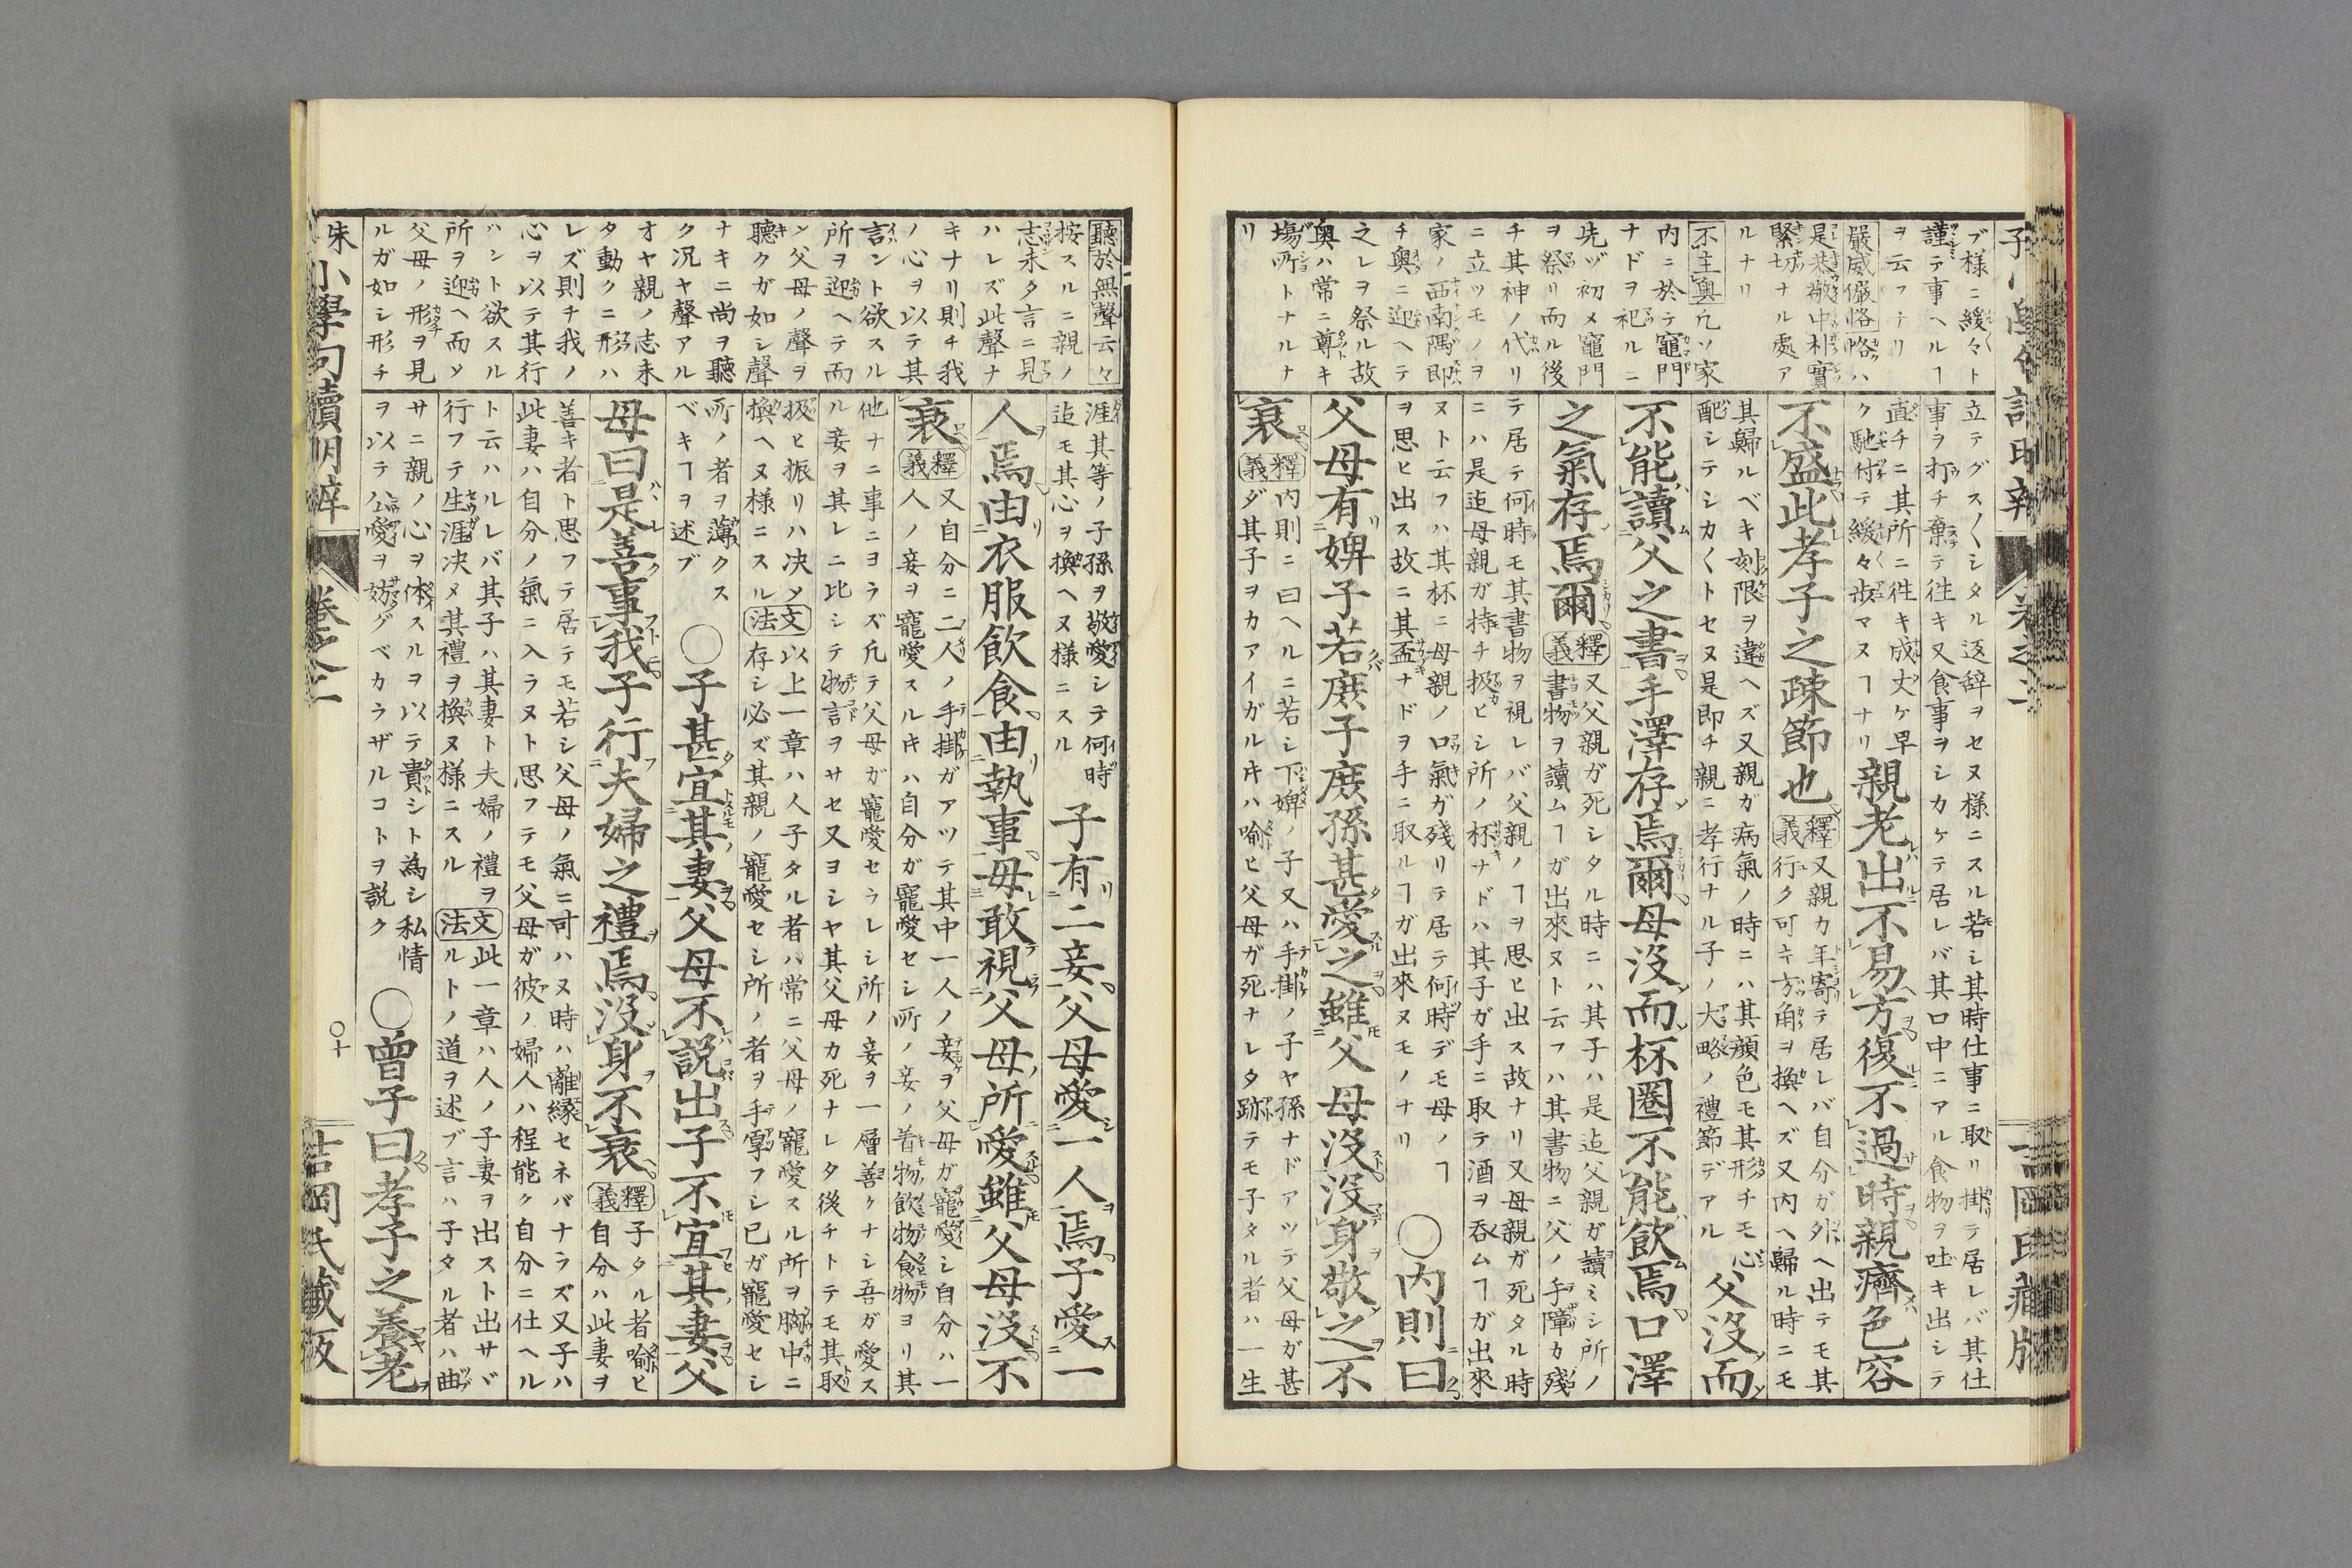 ブ様ニ緩々ト
謹テ事ヘルヿ
ヲ云フナリ
嚴威儼恪恪ハ
是恭敬中朴實
緊切ナル處ア
ルナリ
不主奧凢ソ家
内ニ於テ竈門
ナドヲ祀ルニ
先ヅ初メ竈門
ヲ祭リ而ル後
チ其神ノ代リ
ニ立ツモノヲ
家ノ西南隅即
チ奧ニ迎ヘテ
之レヲ祭ル故
奧ハ常ニ尊キ
塲所トナルナ
リ
立テグスグスシタル返辞ヲセヌ様ニスル若シ其時仕事ニ取リ掛テ居レバ其仕
事ヲ打チ棄テ徃キ又食事ヲシカケテ居レバ其口中ニアル食物ヲ吐キ出シテ
直チニ其所ニ徃キ成丈ケ早
ク馳付テ緩々歩マヌヿナリ
親老出不易方復不過時親癠色容
不盛此孝子之疎節也
釋義
又親カ年寄テ居レバ自分ガ外ヘ出テモ其
行ク可キ方角ヲ換ヘズ又内ヘ歸ル時ニモ
其歸ルベキ刻限ヲ違ヘズ又親ガ病氣ノ時ニハ其顔色モ其形チモ心
配シテシカ〱トセヌ是即チ親ニ孝行ナル子ノ大略ノ禮節デアル
父沒而
不能讀父之書手澤存焉爾母沒而杯圈不能飲焉口澤
之氣存焉爾
釋義
又父親ガ死シタル時ニハ其子ハ是迄父親ガ讀ミシ所ノ
書物ヲ讀ムヿガ出來ヌト云フハ其書物ニ父ノ手障カ殘
テ居テ何時モ其書物ヲ視レバ父親ノヿヲ思ヒ出ス故ナリ又母親ガ死タル時
ニハ是迄母親ガ持チ扱ヒシ所ノ杯ナドハ其子ガ手ニ取テ酒ヲ呑ムヿガ出來
ヌト云フハ其杯ニ母親ノ口氣ガ殘リテ居テ何時デモ母ノヿ
ヲ思ヒ出ス故ニ其盃ナドヲ手ニ取ルヿガ出來ヌモノナリ
〇内則曰
父母有婢子若庶子庶孫甚愛之雖父母沒沒身敬之不
衰
釋義
内則ニ曰ヘルニ若シ下婢ノ子又ハ手掛ノ子ヤ孫ナドアツテ父母ガ甚
ダ其子ヲカアイガル𪜈ハ喩ヒ父母ガ死ナレタ跡テモ子タル者ハ一生
聽於無聲云々
按スルニ親ノ
志未タ言ニ見
ハレズ此聲ナ
キナリ則チ我
ノ心ヲ以テ其
言ント欲スル
所ヲ迎ヘテ而
ノ父母ノ聲ヲ
聽クガ如シ聲
ナキニ尚ヲ聽
ク况ヤ聲アル
オヤ親ノ志未
タ動クニ形ハ
レズ則チ我ノ
心ヲ以テ其行
ハント欲スル
所ヲ迎ヘ而ソ
父母ノ形ヲ見
ルガ如シ形チ
涯其等ノ子孫ヲ敬愛シテ何時
迄モ其心ヲ換ヘヌ様ニスル
子有二妾父母愛一人焉子愛一
人焉由衣服飲食由執事毋敢視父母所愛雖父母沒不
衰
釋義
又自分ニ二人ノ手掛ガアツテ其中一人ノ妾ヲ父母ガ寵愛シ自分ハ一
人ノ妾ヲ寵愛スル𪜈ハ自分ガ寵愛セシ所ノ妾ノ着物飲物食物ヨリ其
他ナニ事ニヨラズ凡テ父母ガ寵愛セラレシ所ノ妾ヲ一層善ケナシ吾ガ愛ス
ル妾ヲ其レニ比シテ物言ヲサセ又ヨシヤ其父母カ死ナレタ後チトテモ其取
扱ヒ振リハ决メ
換ヘヌ様ニスル
文法
以上一章ハ人子タル者ハ常ニ父母ノ寵愛スル所ヲ胸中ニ
存シ必ズ其親ノ寵愛セシ所ノ者ヲ手厚フシ已ガ寵愛セシ
所ノ者ヲ薄クス
ベキヿヲ述ブ
〇子甚宜其妻父母不說出子不宜其妻父
母曰是善事我子行夫婦之禮焉沒身不衰
釋義
子タル者喩ヒ
自分ハ此妻ヲ
善キ者ト思フテ居テモ若シ父母ノ氣ニ可ハヌ時ハ離縁セネバナラズ又子ハ
此妻ハ自分ノ氣ニ入ラヌト思フテモ父母ガ彼ノ婦人ハ程能ク自分ニ仕ヘル
ト云ハルレバ其子ハ其妻ト夫婦ノ禮ヲ
行フテ生涯决メ其禮ヲ換ヌ様ニスル
文法
此一章ハ人ノ子妻ヲ出スト出サヾ
ルトノ道ヲ述ブ言ハ子タル者ハ曲
サニ親ノ心ヲ体スルヲ以テ貴シト為シ私情
ヲ以テ公愛ヲ妨グベカラザルコトヲ説ク
〇曾子曰孝子之養老
朱小學句讀明辨 卷之二 〇十 吉岡氏藏板